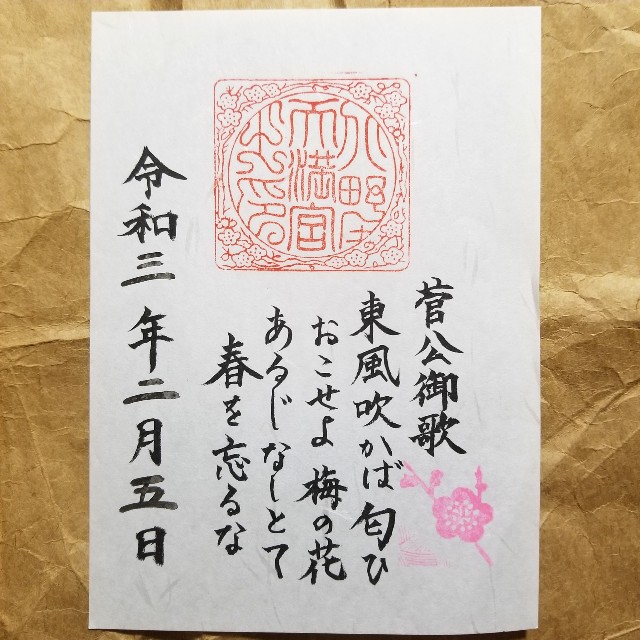 天満宮
菅公御歌
東風吹かば匂ひ
おこせよ梅の花
あるじなしとて
春を忘るな
令和三年二月五日